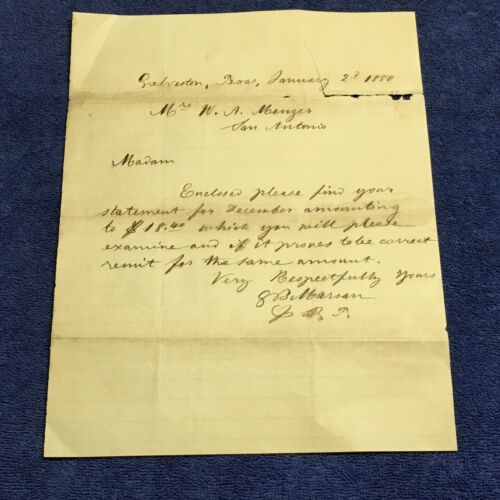 Galveston, Texas, January 2d 1880
Mrs W. A. Menger
San Antonio
Madam
Enclosed please find your
statement for December amounting
to $18.40 which you will please
examine and if it proves to be correct
remit for the same amount.
Very Respectfully Yours
Marsan
P. T.